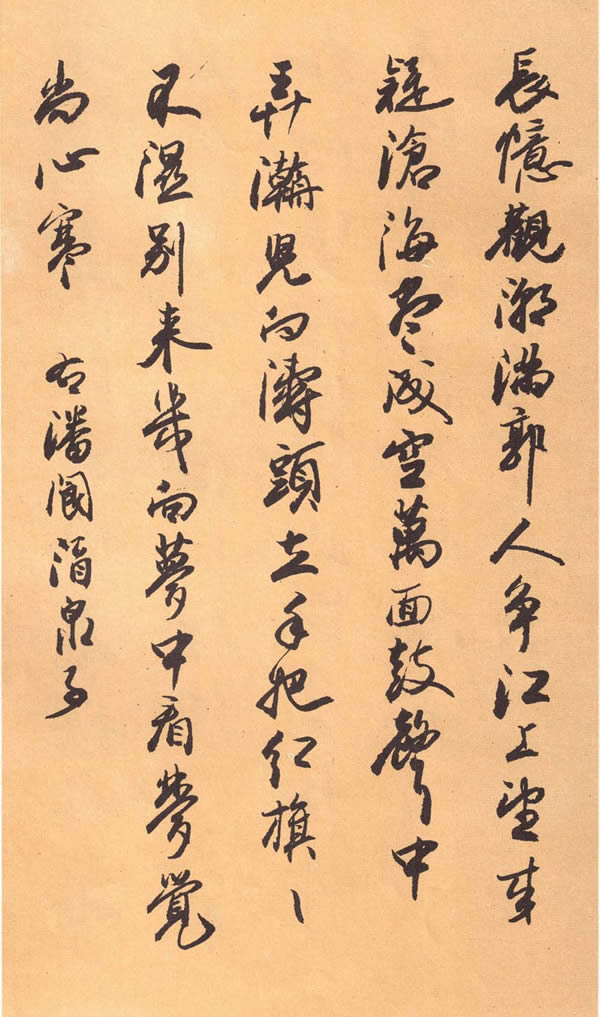 長憶觀潮滿郭人争江上望来
疑滄海盡成空萬面鼓聲中
弄潮兒向濤頭立手把紅旗〻
不濕别来幾向夢中看夢覺
尚心寒 右潘閬酒泉子